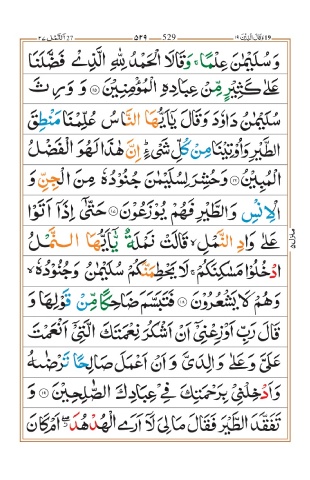 وَسُلَيْمٰنَ عِلْمًا ۚ وَقَالَا الْحَمْدُ لِلّٰهِ الَّذِيْ فَضَّلَنَا
عَلٰى كَثِيْرٍ مِّنْ عِبَادِهِ الْمُؤْمِنِيْنَ ﴿۱۵﴾ وَوَرِثَ
سُلَيْمٰنُ دَاوٗدَ وَقَالَ يٰۤاَيُّهَا النَّاسُ عُلِّمْنَا مَنْطِقَ
الطَّيْرِ وَاُوْتِيْنَا مِنْ كُلِّ شَيْءٍ ؕ اِنَّ هٰذَا لَهُوَ الْفَضْلُ
الْمُبِيْنُ ﴿۱۶﴾ وَحُشِرَ لِسُلَيْمٰنَ جُنُوْدُهٗ مِنَ الْجِنِّ وَ
الْاِنْسِ وَالطَّيْرِ فَهُمْ يُوْزَعُوْنَ ﴿۱۷﴾ حَتّٰۤى اِذَاۤ اَتَوْا
عَلٰى وَادِ النَّمْلِ ۙ قَالَتْ نَمْلَةٌ يّٰۤاَيُّهَا النَّمْلُ
ادْخُلُوْا مَسٰكِنَكُمْ ۚ لَا يَحْطِمَنَّكُمْ سُلَيْمٰنُ وَجُنُوْدُهٗ ۙ
وَهُمْ لَا يَشْعُرُوْنَ ﴿۱۸﴾ فَتَبَسَّمَ ضَاحِكًا مِّنْ قَوْلِهَا وَ
قَالَ رَبِّ اَوْزِعْنِيْۤ اَنْ اَشْكُرَ نِعْمَتَكَ الَّتِيْۤ اَنْعَمْتَ
عَلَيَّ وَعَلٰى وَالِدَيَّ وَاَنْ اَعْمَلَ صَالِحًا تَرْضٰىهُ
وَاَدْخِلْنِيْ بِرَحْمَتِكَ فِيْ عِبَادِكَ الصّٰلِحِيْنَ ﴿۱۹﴾ وَ
تَفَقَّدَ الطَّيْرَ فَقَالَ مَا لِيَ لَاۤ اَرَى الْهُدْهُدَ ۖ اَمْ كَانَ